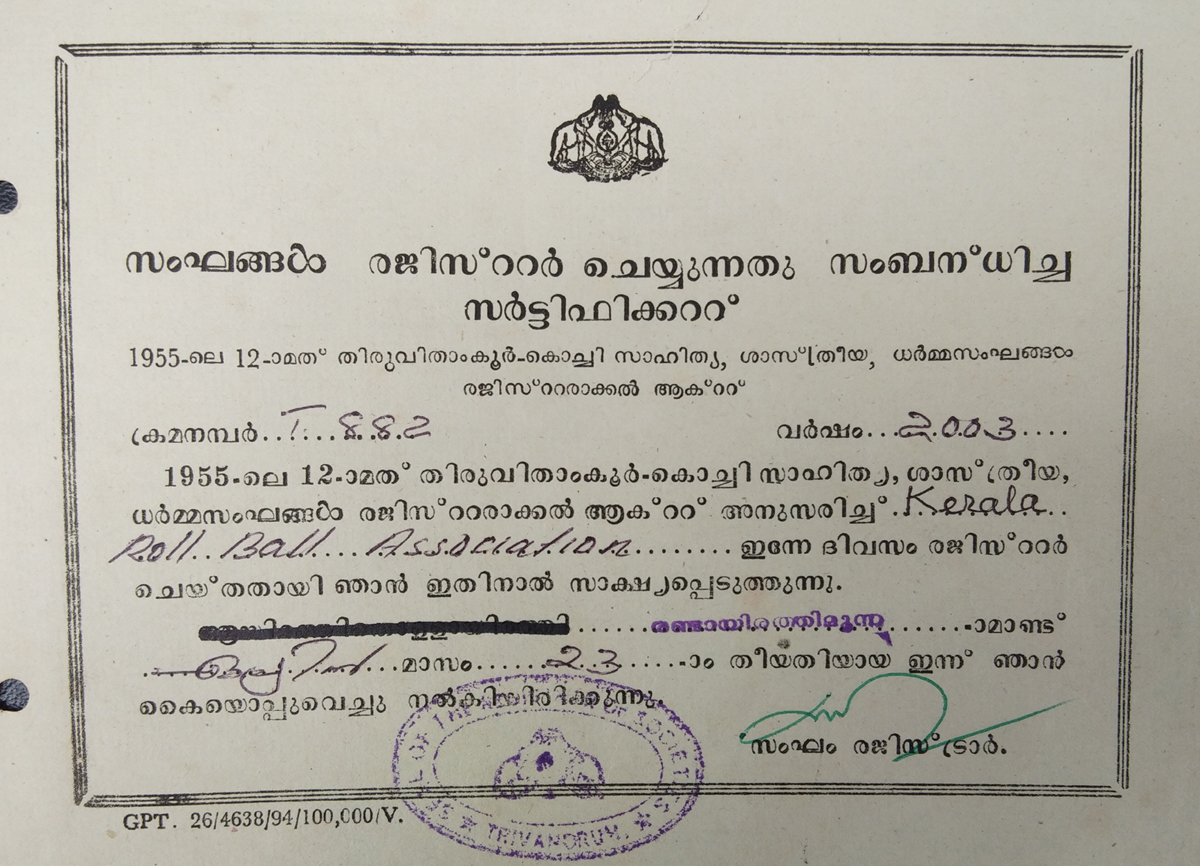 സംഘങ്ങൾ രജിസ്റ്റർ ചെയ്യുന്നതു സംബന്ധിച്ച
സർട്ടിഫിക്കററ്
1955-ലെ 12-ാമത് തിരുവിതാംകൂർ-കൊച്ചി സാഹിത്യ, ശാസ്ത്രീയ, ധർമ്മസംഘങ്ങൾ
രജിസ്റ്ററാക്കൽ ആക്ററ്
ക്രമനമ്പർ..T....8.8.2 വർഷം...2.0.0.3....
1955-ലെ 12-ാമത് തിരുവിതാംകൂർ-കൊച്ചി സാഹിത്യ, ശാസ്ത്രീയ,
ധർമ്മസംഘങ്ങൾ രജിസ്റ്ററാക്കൽ ആക്ററ് അനുസരിച്ച് Kerala
Roll Ball Association........ ഇന്നേ ദിവസം രജിസ്റ്റർ
ചെയ്തതായി ഞാൻ ഇതിനാൽ സാക്ഷ്യപ്പെടുത്തുന്നു.
രണ്ടായിരത്തിമൂന്നു.......-ാമാണ്ട്
ഏപ്രിൽ...മാസം......23.....-ാം തീയതിയായ ഇന്ന് ഞാൻ
കൈയൊപ്പുവെച്ചു നൽകിയിരിക്കുന്നു.
സംഘം രജിസ്ട്രാർ.
GPT. 26/4638/94/100,000/V.
SEAL OF THE REGISTRAR OF SOCIETIES
TRIVANDRUM.